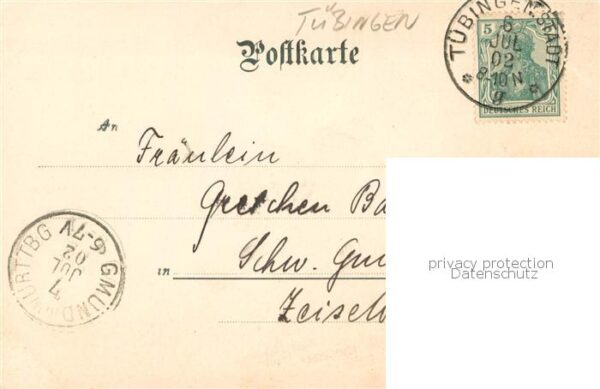 TÜBINGEN
TÜBINGEN STADT
6
JUL
02
8-10 N
g
5
DEUTSCHES REICH
Postkarte
An
Fräulein
Gretchen Ba
in Schw. Gm
Zeisel
GMÜND WÜRTTBG
7
JUL
02
6-7V
privacy protection
Datenschutz